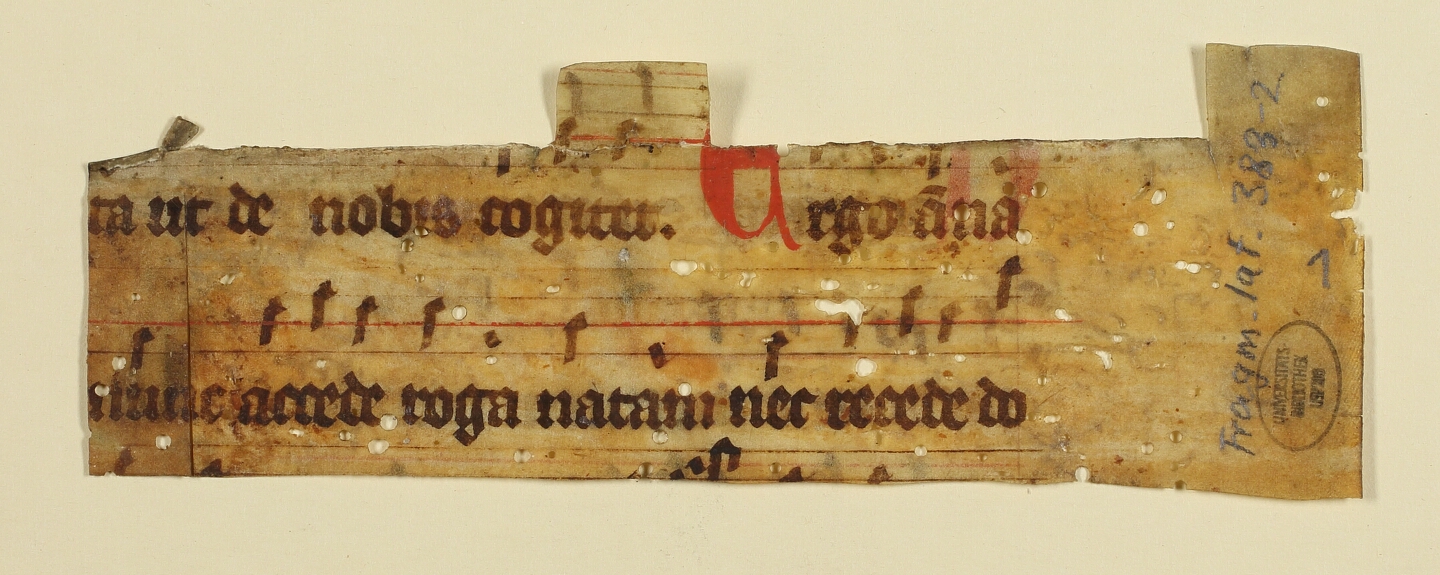 ta ut de nobis cogitet. Ergo āna
nunc accede roga natam nec recede do
Fragm. lat. 388-2
1
UNIVERSITÄTS-
BIBLIOTHEK
GIESSEN